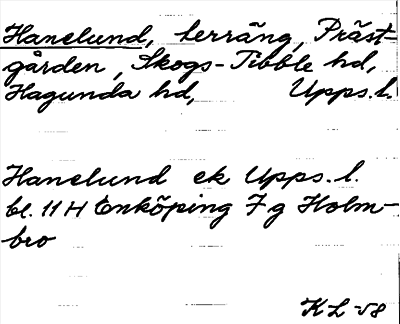 Hanelund, terräng, Präst-
gården, Skogs-Tibble hd,
Hagunda hd, Upps. l.
Hanelund ek Upps. l.
bl. 11 H Enköping 7 g Holm-
bro
KL -58